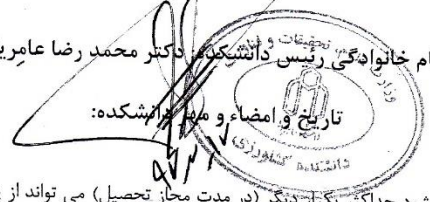 ام خانوادگی رئیس دانشکده: دکتر محمد رضا عامری
تحقیقات و
تاریخ و امضاء و مهر دانشکده:
دانشکده کشاورزی
حداکثر یکبار دیگر (در مدت مجاز تحصیل) می تواند از